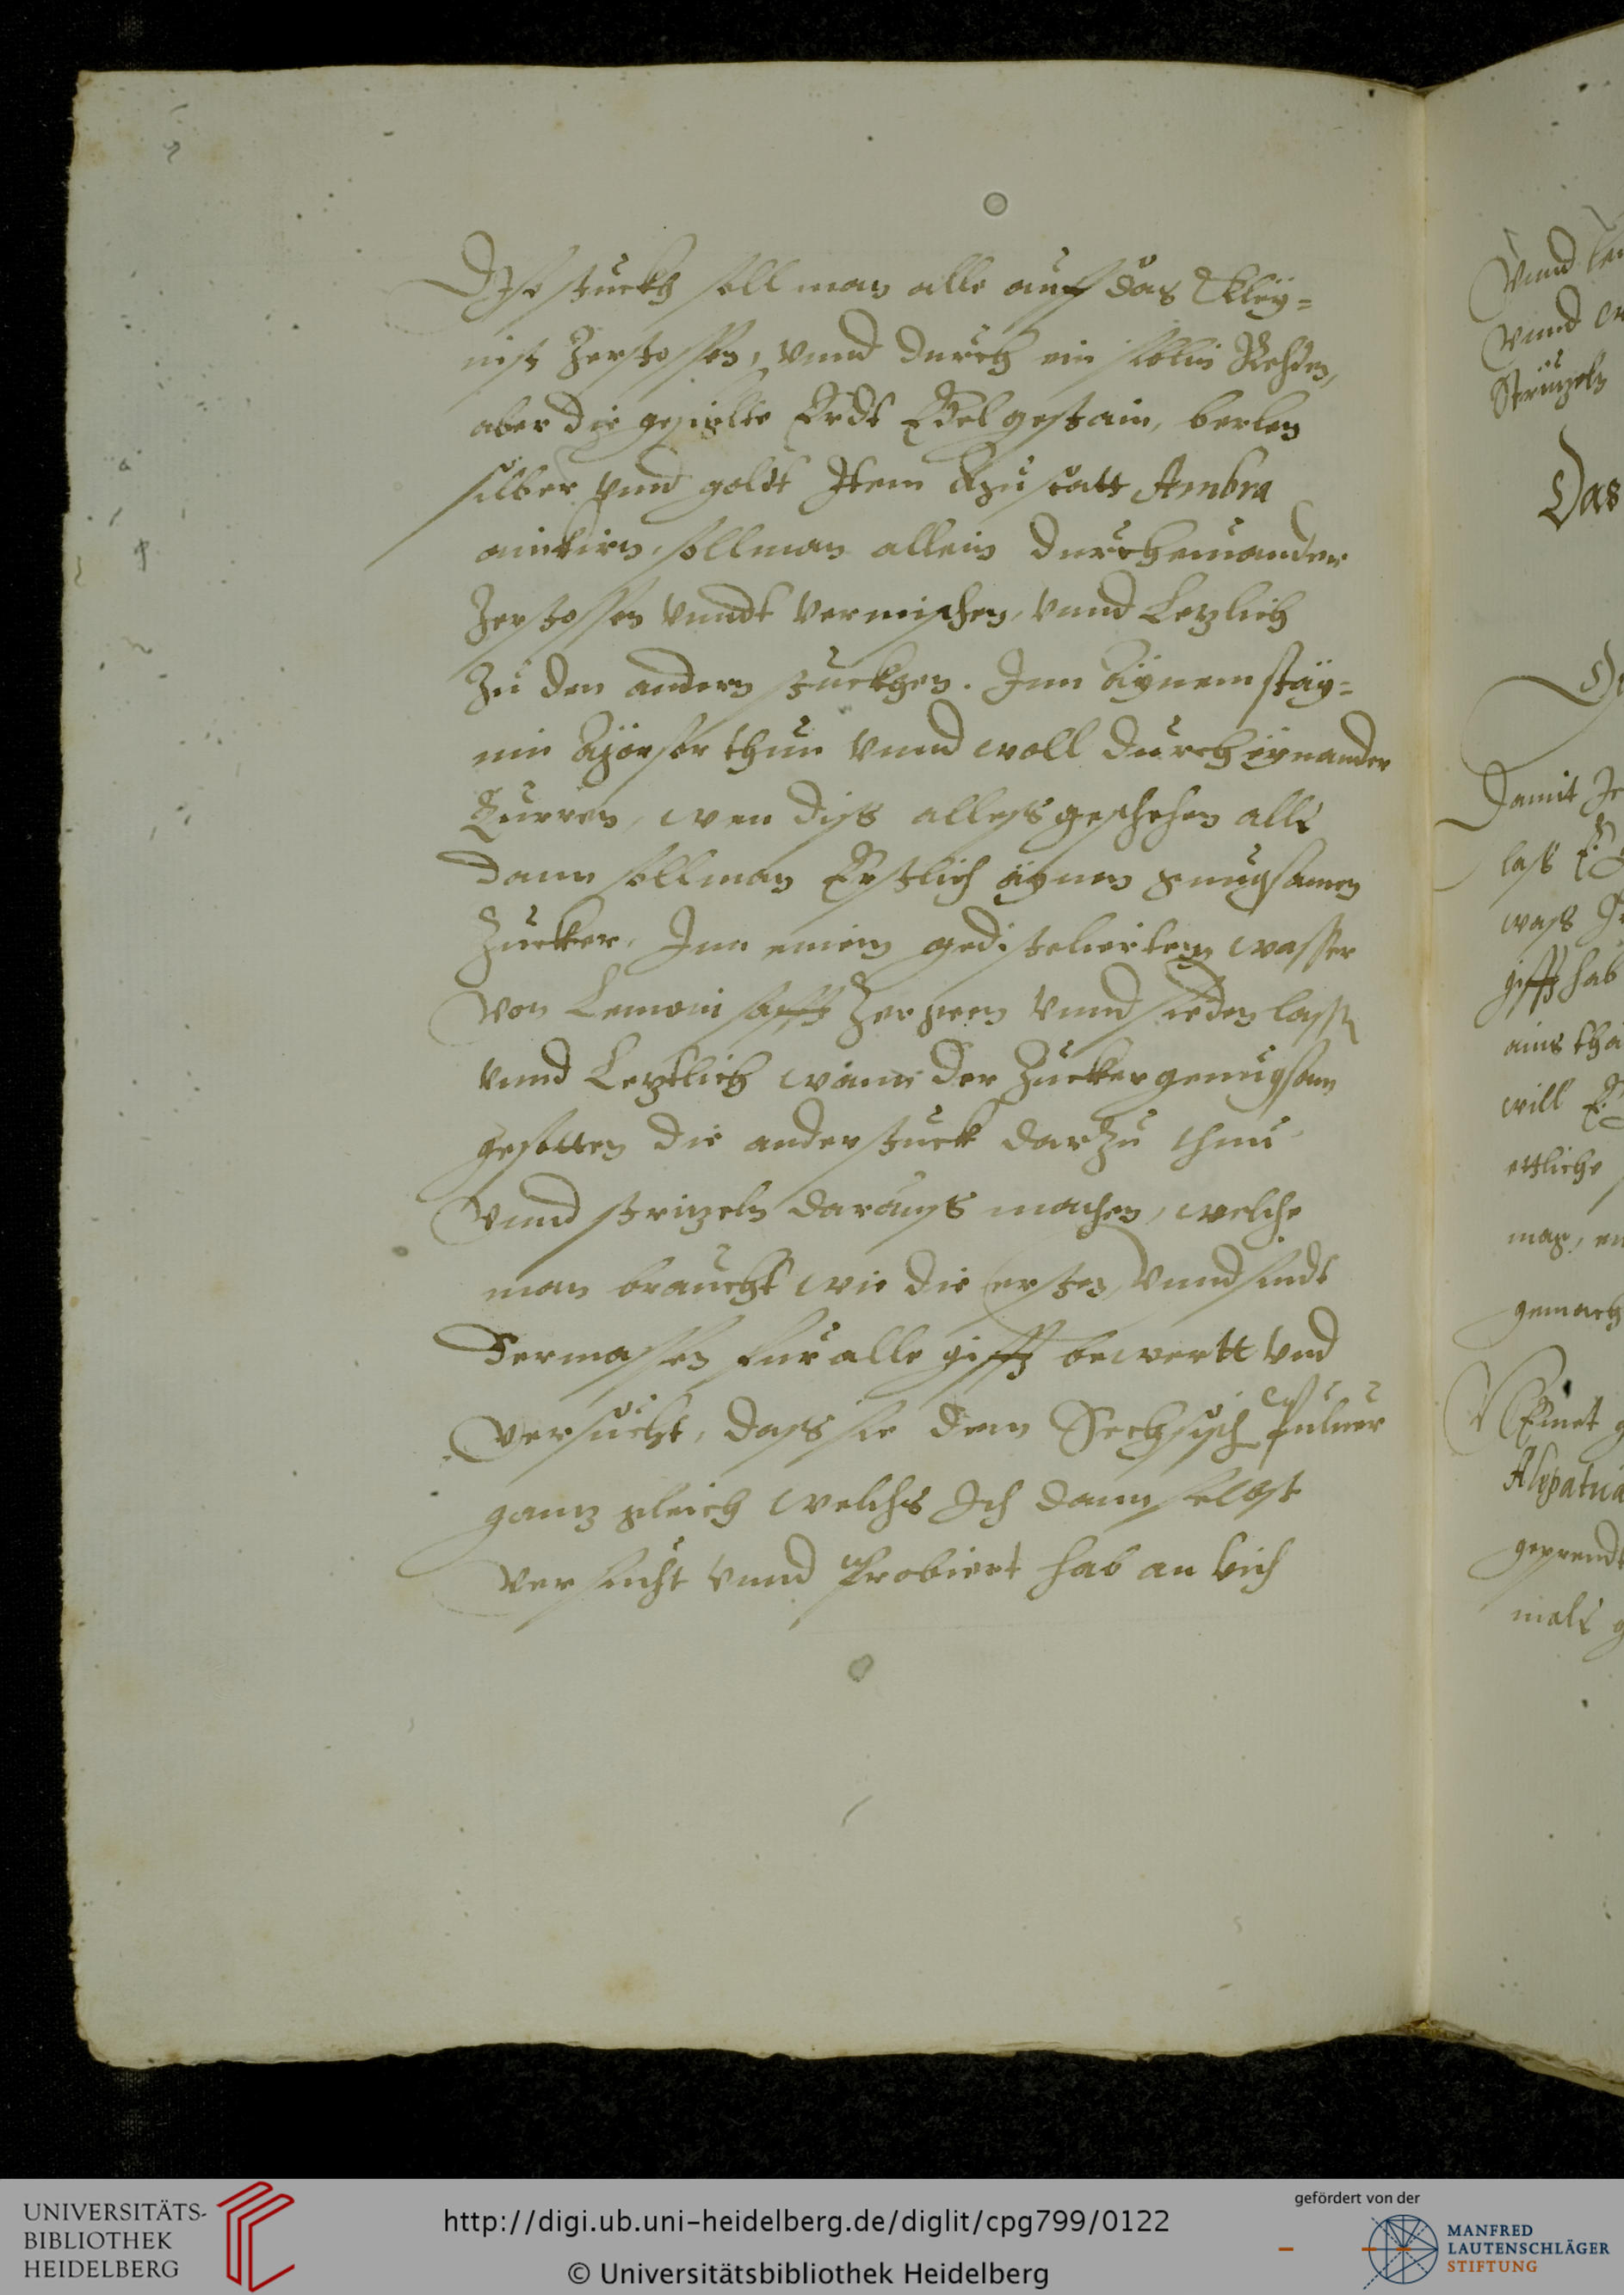 Dise stuckh soll man alle auf das kley=
nist Zerstossen, vnnd durch ein
aber die gesigelte Erdt Edelgestain, berlen
silber vnnd goldt Item Ambra
sollman allein durcheinander
Zerstossen vnndt vermischen, vnnd Letzlich
Zu den andern stuckhen. Inn Aynem stay=
nin Mörser thun vnnd woll durch eynander
wen diss alless geschehen alls
dann sollman Erstlich aynen gnugsamen
Zucker, Inn einem gedisteliertem wasser
von Lemoni safft Zergeen vnnd sieden lassen
vnnd Letztlich wann der Zucker genugsam
gesotten die ander stuck darzu thun
vnnd stritzeln darauss machen, welche
man braucht wie die ersten, vnnd sindt
dermassen für alle gifft bewertt vnd
versucht, dass sie dem Sechsisch Puluer
gantz gleich welchs Ich dann selbst
versucht vnnd Probiert hab an vich
vnnd
vnnd
Strützeln
Das
Damit
lass
wass
gifft hab
ains
will
ettliche
mag,
gemach
mals
UNIVERSITÄTS-
BIBLIOTHEK
HEIDELBERG
http://digi.ub.uni-heidelberg.de/diglit/cpg799/0122
© Universitätsbibliothek Heidelberg
gefördert von der
MANFRED
LAUTENSCHLÄGER
STIFTUNG